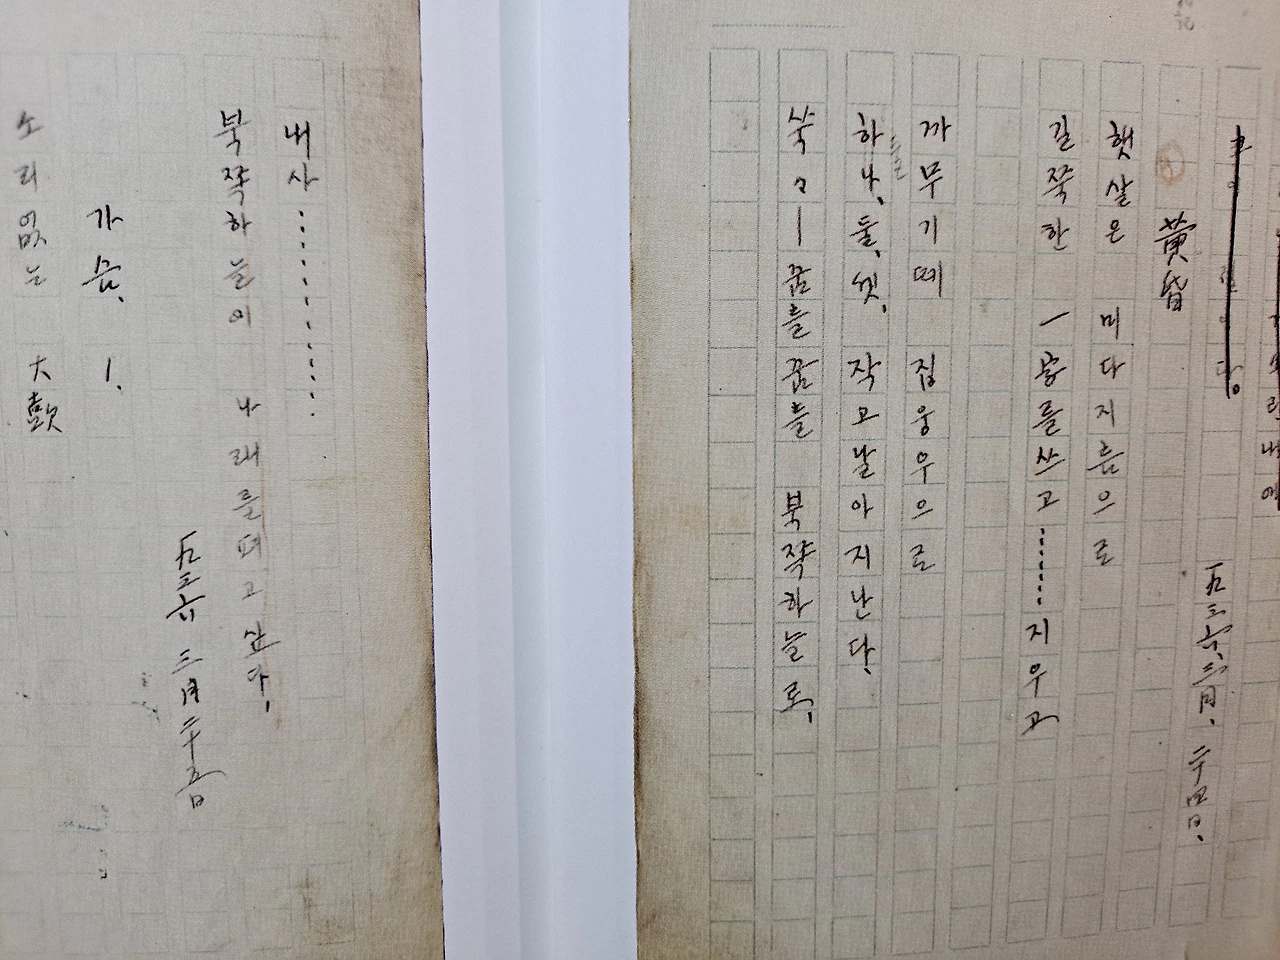 五三六、三月、二十四日、
黃昏
햇살은 미다지틈으로
길쭉한 一字를쓰고……지우고
까무기떼 집웅우으로
하나、둘、셋、작고날아지난다、
쑥々ー꿈틀꿈틀 북쪽하늘로、
내사…………
북쪽하늘이 나래를펴고싶다、
五三六 三月二十五日
가슴、1、
소리없는 大鼓